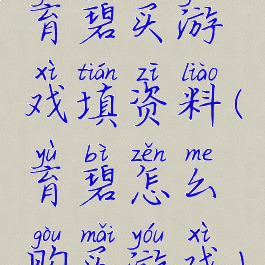 育碧买游
xì tián zī liào
戏填资料(
yù bì zěn me
育碧怎么
gòu mǎi yóu xì
购买游戏)